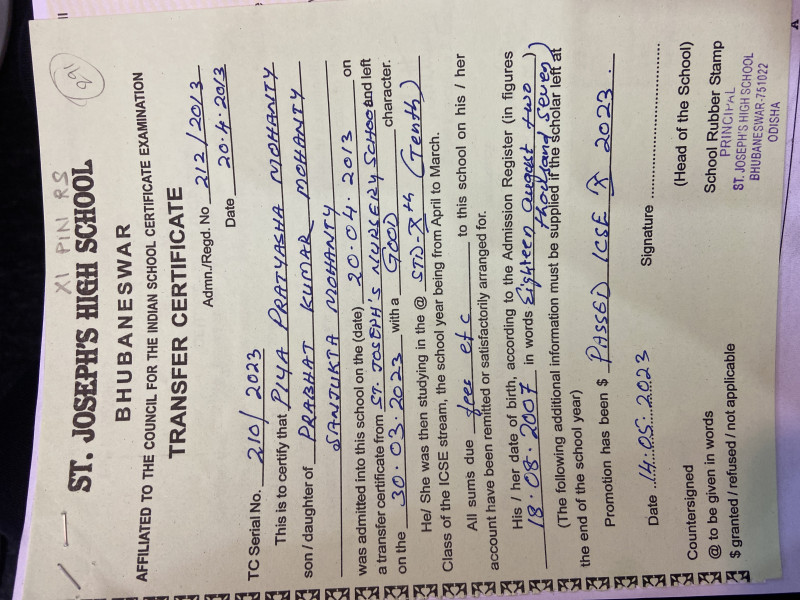 291
XI PIN RS
ST. JOSEPH'S HIGH SCHOOL
BHUBANESWAR
AFFILIATED TO THE COUNCIL FOR THE INDIAN SCHOOL CERTIFICATE EXAMINATION
TRANSFER CERTIFICATE
Admn./Regd. No 212/2013
Date 20.4.2013
TC Serial No. 210/2023
This is to certify that PIYA PRATYASHA MOHANTY
son / daughter of PRABHAT KUMAR MOHANTY
SANJUKTA MOHANTY
was admitted into this school on the (date) 20.04.2013 on
a transfer certificate from ST. JOSEPH'S NURSERY SCHOOL and left
on the 30.03.2023 with a GOOD character.
He/ She was then studying in the @ STD-Xth (Tenth)
Class of the ICSE stream, the school year being from April to March.
All sums due fees etc to this school on his / her
account have been remitted or satisfactorily arranged for.
His / her date of birth, according to the Admission Register (in figures
18.08.2007 in words Eighteen august two)
thousand seven)
(The following additional information must be supplied if the scholar left at
the end of the school year)
Promotion has been $ PASSED ICSE X 2023.
Date 14.05.2023 Signature
Countersigned (Head of the School)
@ to be given in words School Rubber Stamp
$ granted / refused / not applicable
PRINCIPAL
ST. JOSEPH'S HIGH SCHOOL
BHUBANESWAR-751022
ODISHA